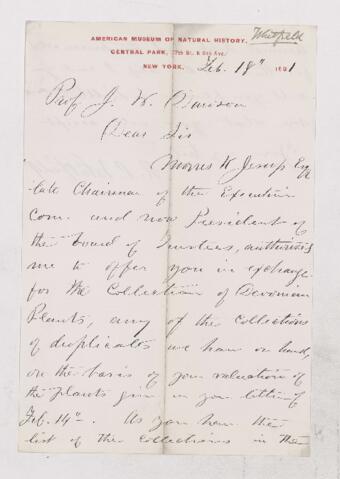 AMERICAN MUSEUM OF NATURAL HISTORY,
Whitfield
CENTRAL PARK, (77th St. & 8th Ave.)
NEW YORK, Feb. 18" 1881
Prof J. W. Dawson
Dear Sir
Morris K Jesup Esq
late Chairman of the Executive
Com. and now President of
the board of Trustees, authorises
me to offer you in exchange
for the Collection of Devonian
Plants, any of the collections
of duplicates we have on hand,
on the basis of your valuation of
the plants given in your letter of
Feb. 14". As you have the
list of the collections in the